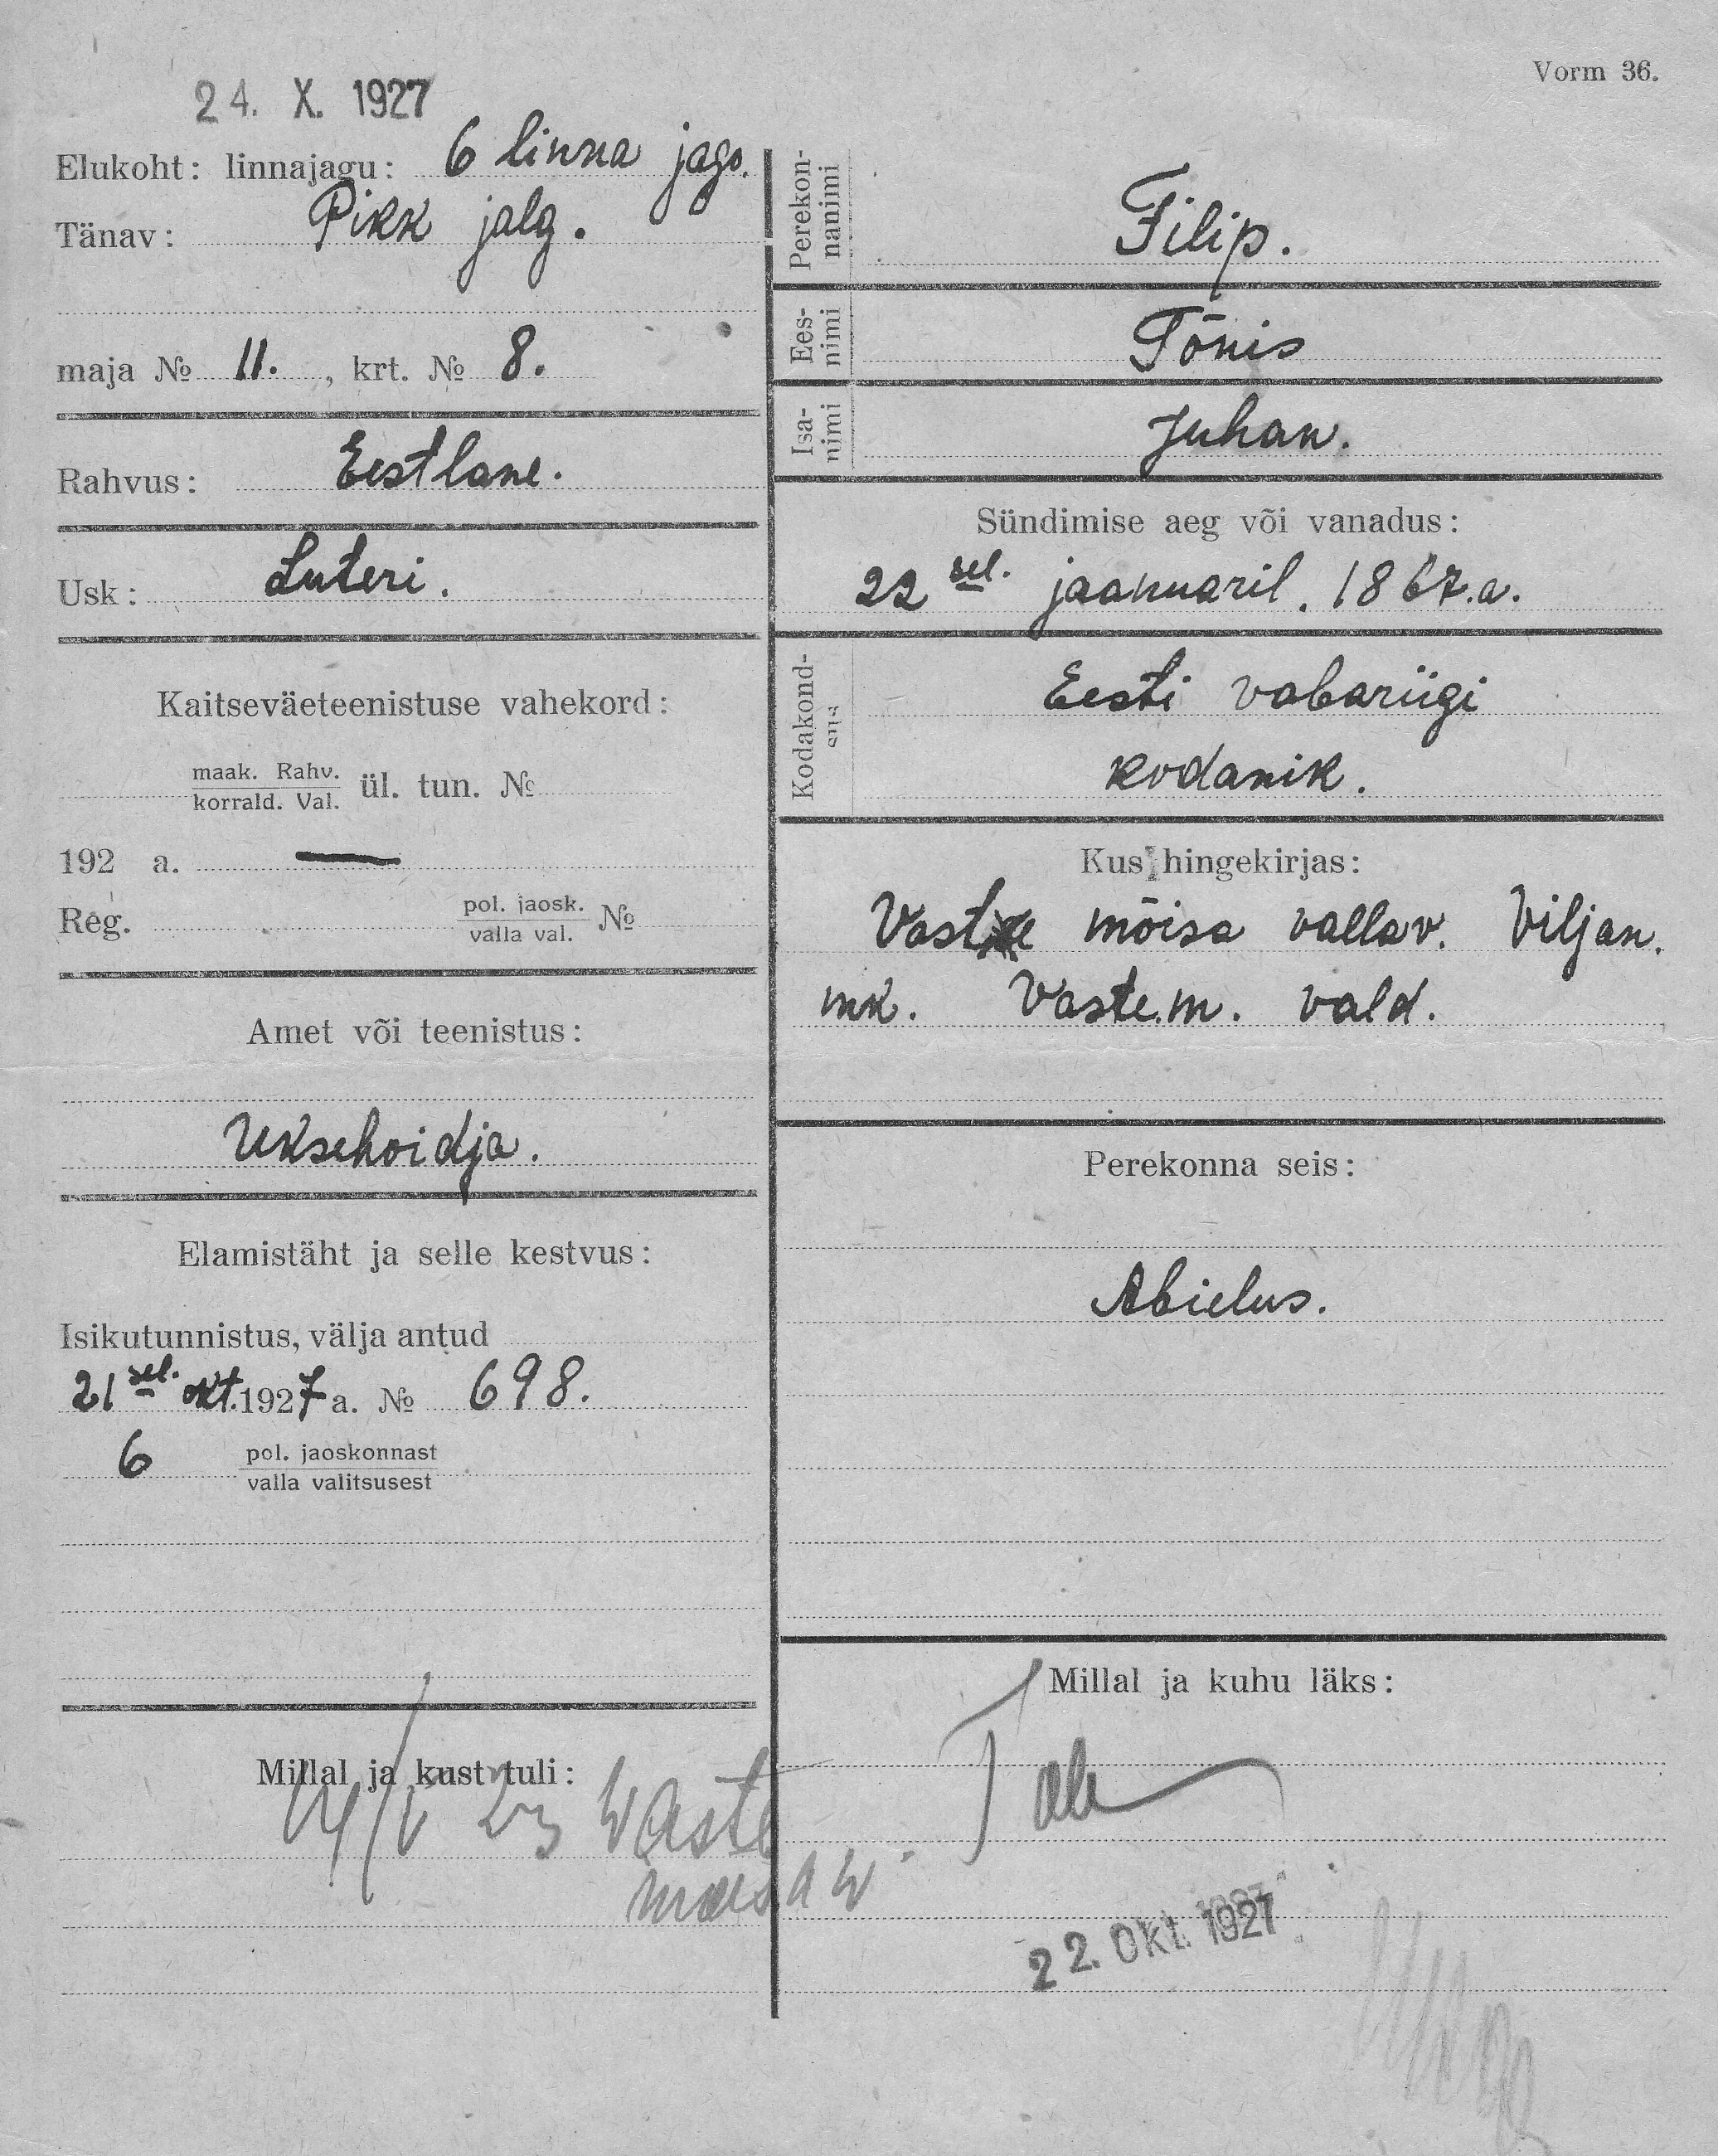 24. X. 1927
Vorm 36.
Elukoht: linnajagu: 6 linna jago.
Tänav: Pikk jalg.
maja № 11. , krt. № 8.
Rahvus: Eestlane.
Usk: Luteri.
Kaitseväeteenistuse vahekord:
maak. Rahv.
korrald. Val. ül. tun. №
192 a. —
Reg. pol. jaosk.
valla val. №
Amet või teenistus:
Uksehoidja.
Elamistäht ja selle kestvus:
Isikutunnistus, välja antud
21 sel. okt. 1927 a. № 698.
6 pol. jaoskonnast
valla valitsusest
Millal ja kust tuli:
Waste
Perekon-
nanimi
Filip.
Ees-
nimi
Tõnis
Isa-
nimi
Juhan.
Sündimise aeg või vanadus:
22 sel. jaanuaril. 1867.a.
Kodakond-
sus
Eesti vabariigi
kodanik.
Kus hingekirjas:
Vaste mõisa vallav. Viljan.
mk. Vaste.m. vald.
Perekonna seis:
Abielus.
Millal ja kuhu läks:
22. Okt. 1927